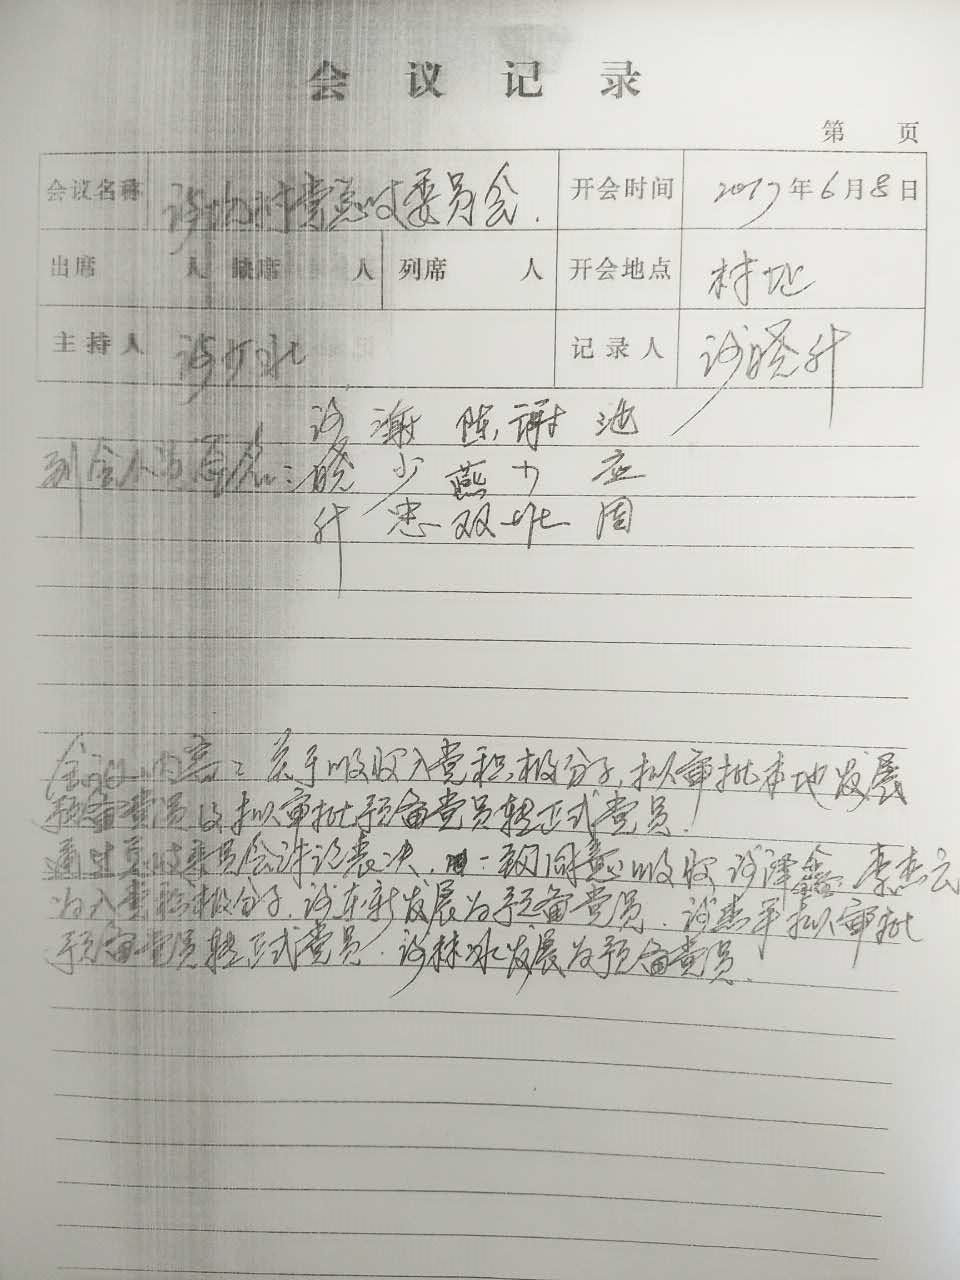 会议记录
第 页
会议名称 村党总支委员会. 开会时间 2017年6月8日
出席 人 缺席 人 列席 人 开会地点 村址
主持人 记录人 谢晓升
到会人员签名: 谢晓升 谢少忠 陈燕双 谢 池应周
会议内容: 关于吸收入党积极分子,拟审批本地发展
预备党员及拟审批预备党员转正式党员.
通过总支委员会讨论表决, 一致同意吸收谢泽鑫 李杰云
为入党积极分子.谢东新发展为预备党员.谢 拟审批
预备党员转正式党员.谢林冰发展为预备党员.